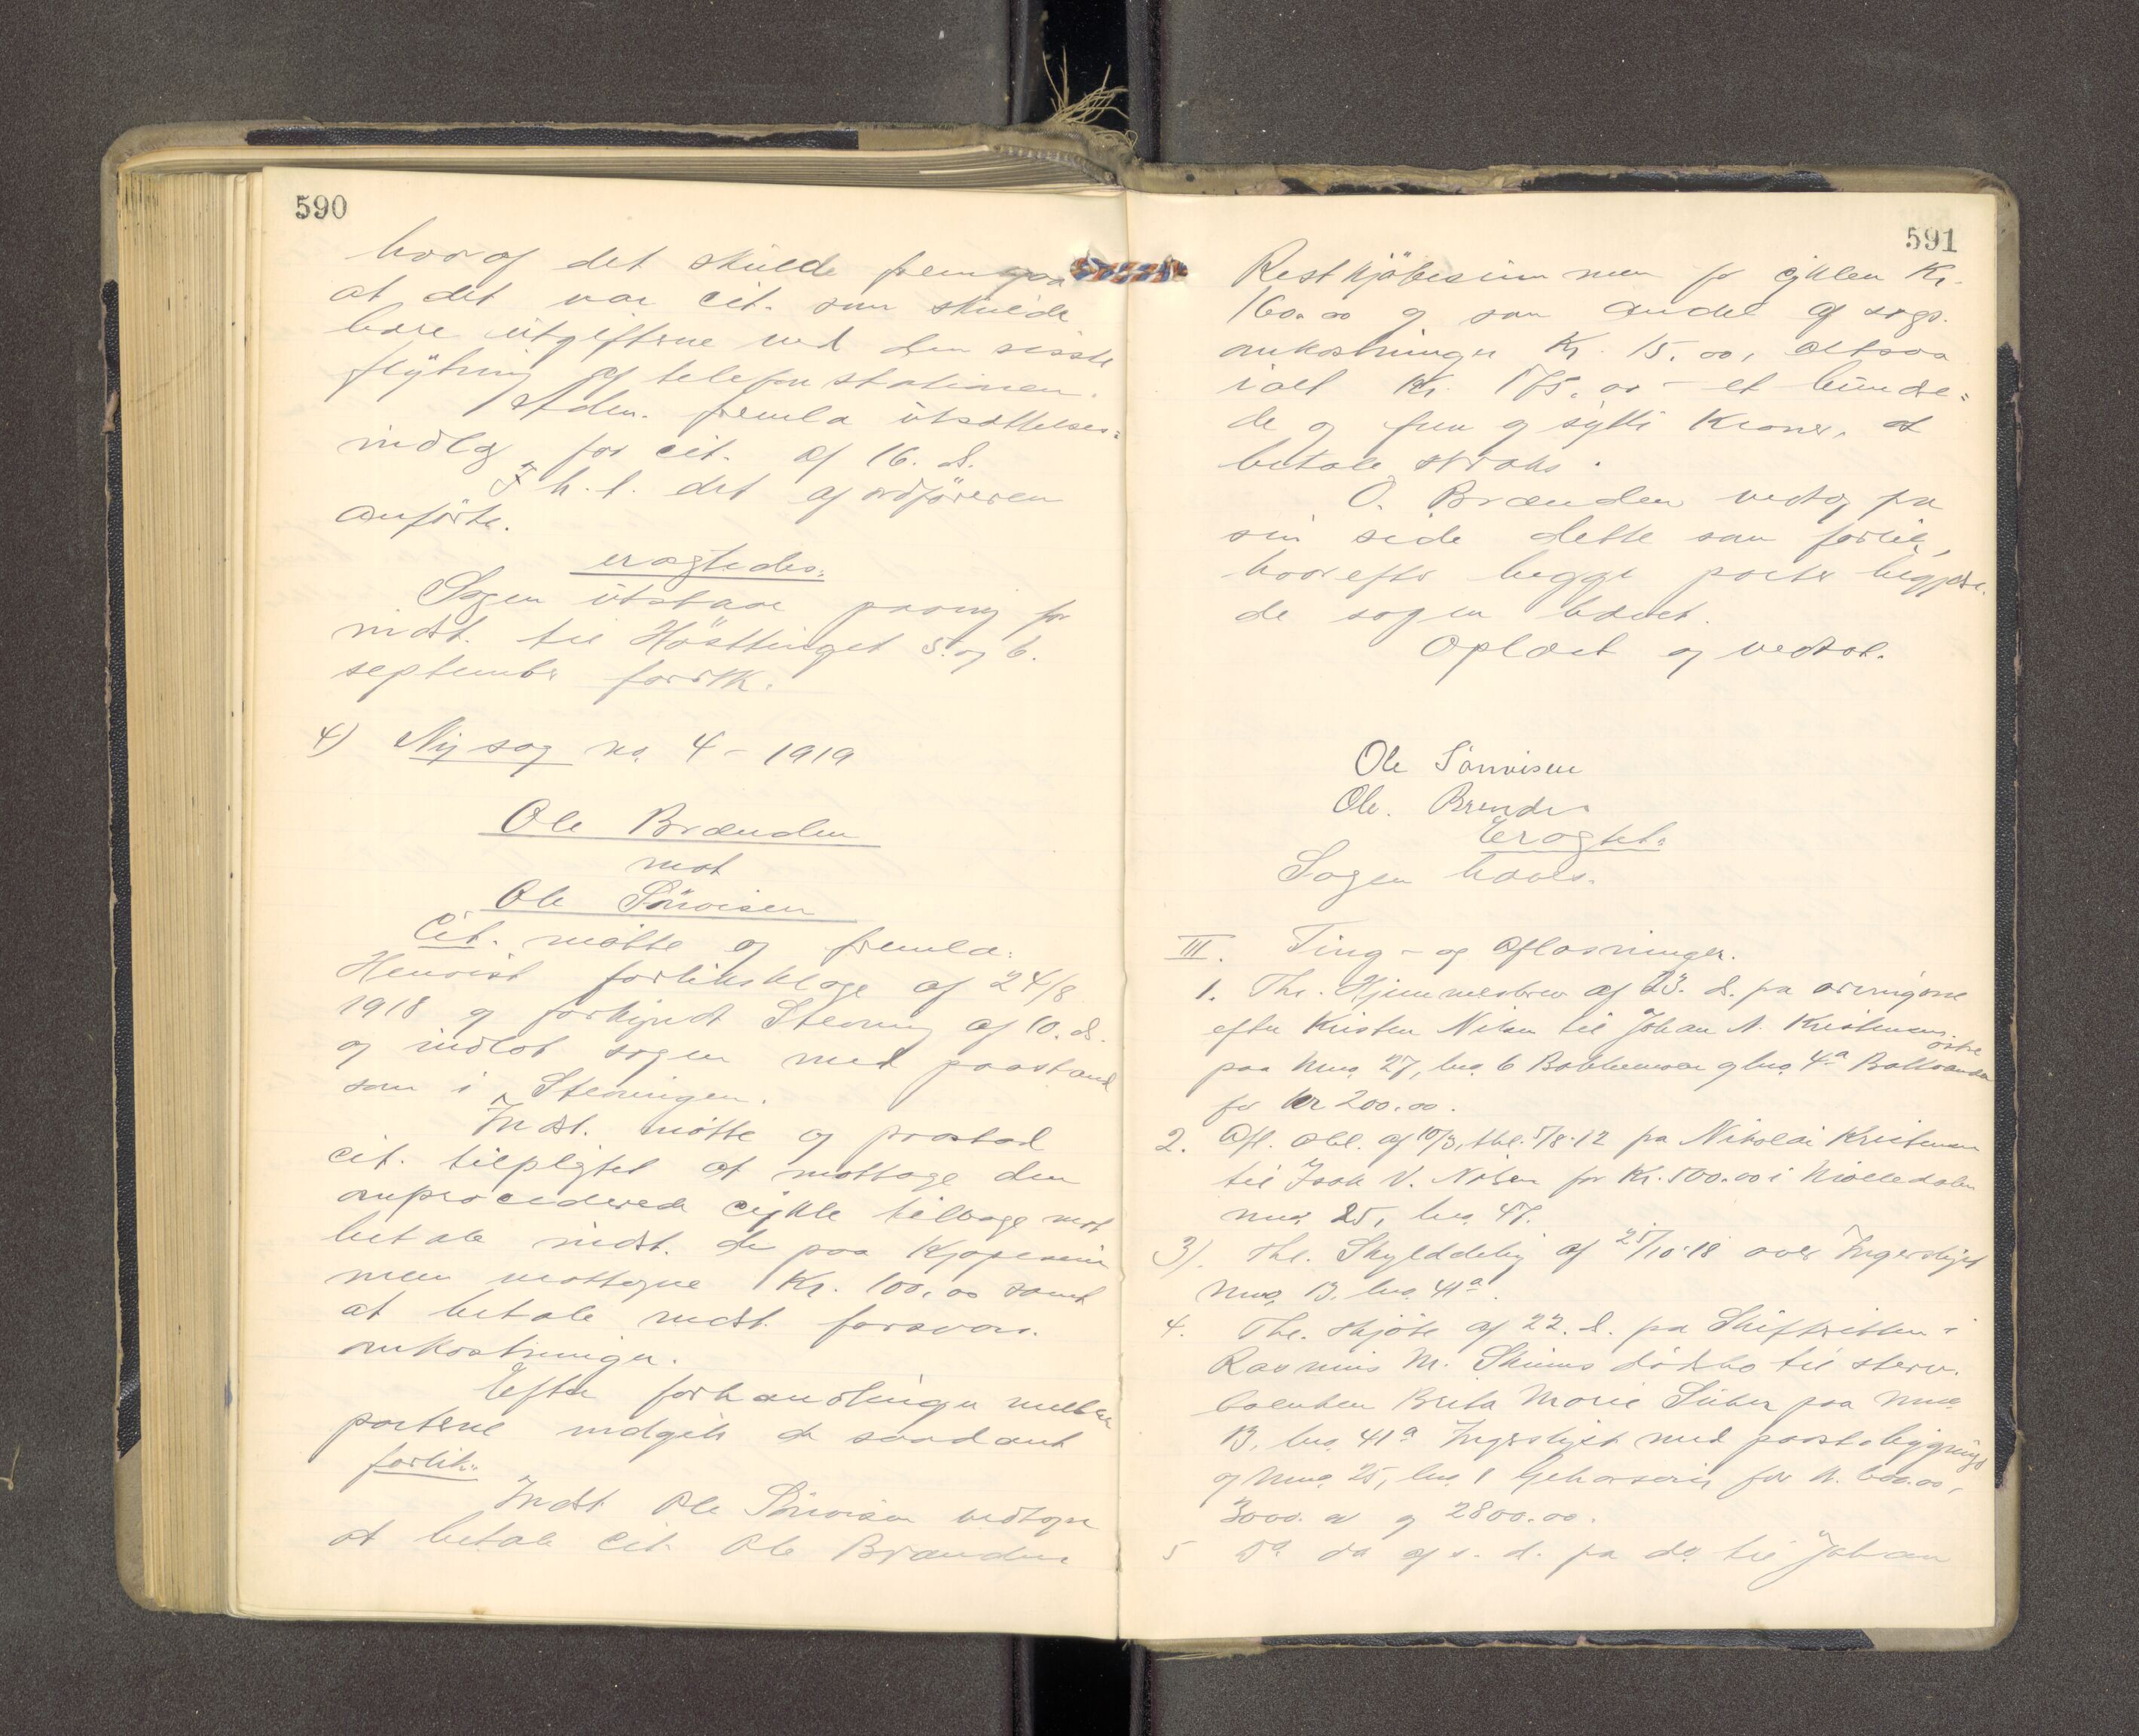 590
hvoraf det skulde fremgaa
at det var cit. som skulde
bære utgifterne ved den sisste
flytning af telefonstationen.
Adm. fremla utsættelses-
indlæg for cit. af 16. d.
I h. t. det af ordføreren
anførte.
eragtedes:
Sagen utstaar paany for
indst. til Høsttinget 5. og 6.
september førstk.
4) Ny sag no. 4 - 1919
Ole Brænden
mot
Ole Sörvisen
Cit. mötte og fremla:
Henvist forliksklage af 24/8
1918 og forkyndt Stevning af 10. d.
og indlot sagen med paastand
som i Stevningen.
Indst. mötte og paastod
cit. tilpligtet at mottage den
omprocederede cykle tilbage mot at
betale indst. de paa Kjøpesum
men mottagne Kr. 100,00 samt
at betale indst. forsvars.
omkostninger.
Efter forhandlinger mellem
parterne indgik de saadant
forlik:
Indst. Ole Sörvisen vedtoges
at betale cit. Ole Brænden
591
Restkjöbesummen for cyklen Kr.
160.00 og som andel af sags.
omkostninger Kr. 15.00, altsaa
ialt Kr. 175.00 - et hundre-
de og fem og sytti Kroner, at
betale straks.
O. Brænden vedtog paa
sin side dette som forlik,
hvorefter begge parter begjære-
de sagen hævet.
Oplæst og vedtat.
Ole Sörvisen
Ole. Brenden
Eragtet:
Sagen hæves.
III. Ting- og Aflæsninger.
1. Thl. Hjemmelsbrev af 23. d. fra arvingene
efter Kristen Nilsen til Johan A. Kristensen
paa Gno. 27, bno. 6 og bno. 4a østre
for kr 200.00.
2. Afl. obl. af 10/3, thl. 5/8-12 fra Nikolai Kristensen
til Isak V. Nilsen for Kr. 500.00 i
gno. 25, bno. 47.
3). Thl. Skylddeling af 25/10-18 over
Gno, 13, bno 41a.
4. Thl. skjöte af 22. d. fra Skifteretten i
Rasmus M. dödsbo til sterv-
Brita Marie paa Gno.
13, bno. 41a med paastaaende bygninger
og Gno. 25, bno. 1 for kr. 600.00,
3000.00 og 2800.00.
5 Do. do af s. d. fra do. til Johan